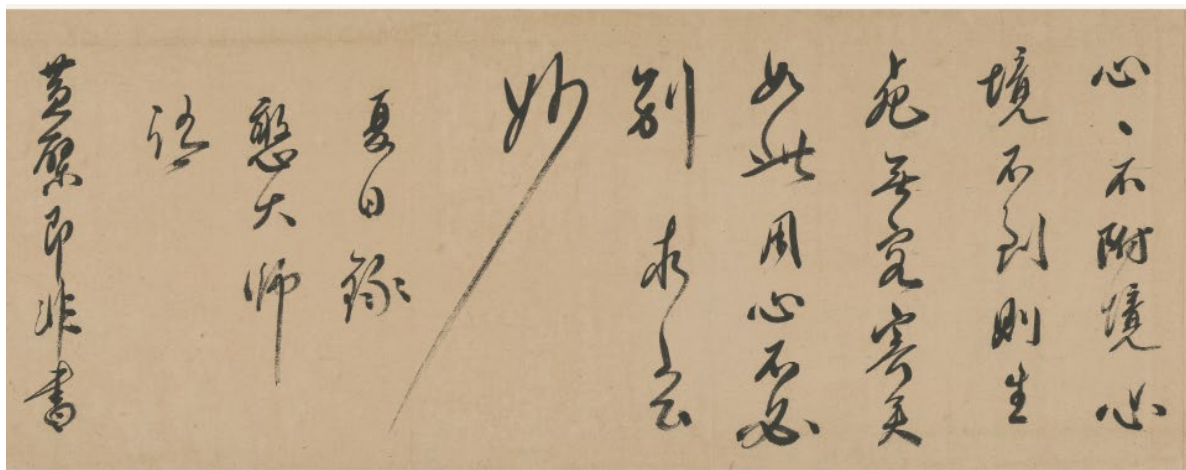 心々不附境心
境不到則生
死無容寄矣
如此用心不必
別求玄
妙
夏日錄
憨大師
語
黃檗即非書